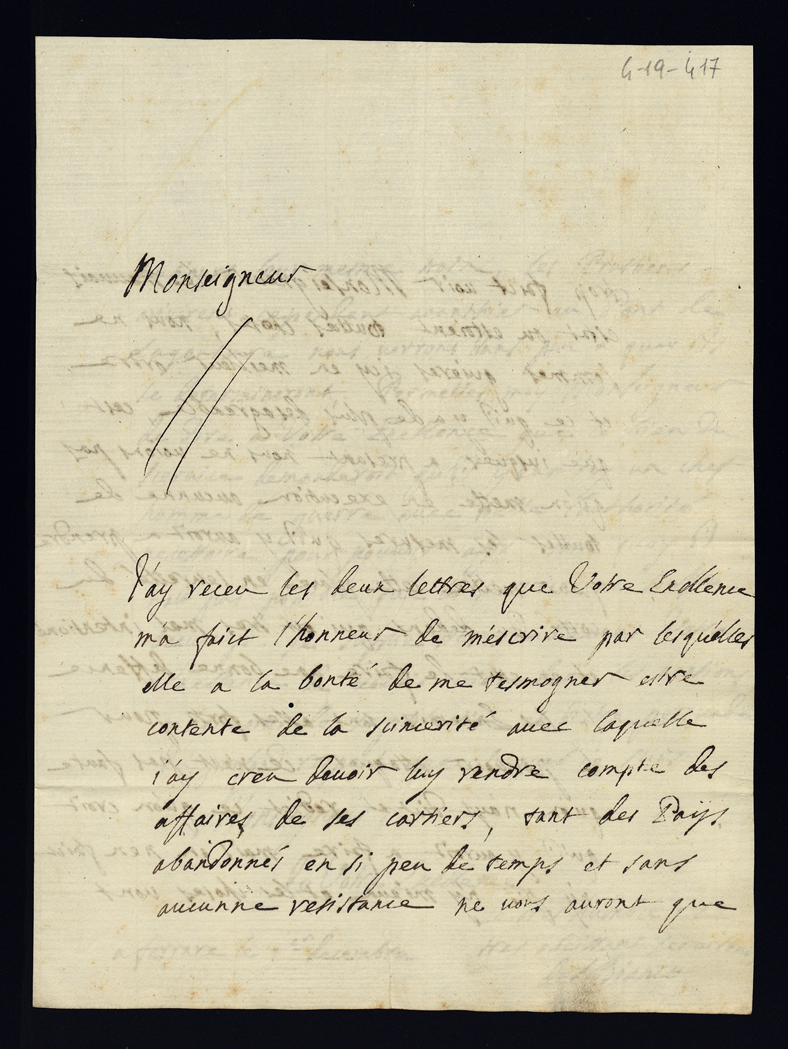 4-19-417
Monseigneur
J'ay receu les deux lettres que Votre Excellence
m'a faict l'honneur de m'escrire par lesquelles
elle a la bonté de me tesmogner estre
contente de la sincerité avec laquelle
i'ay creu devoir luy randre compte des
affaires de ses cartiers, tant des Païs
abandonnés en si peu de temps et sans
aucunne resistance ne vous auront que